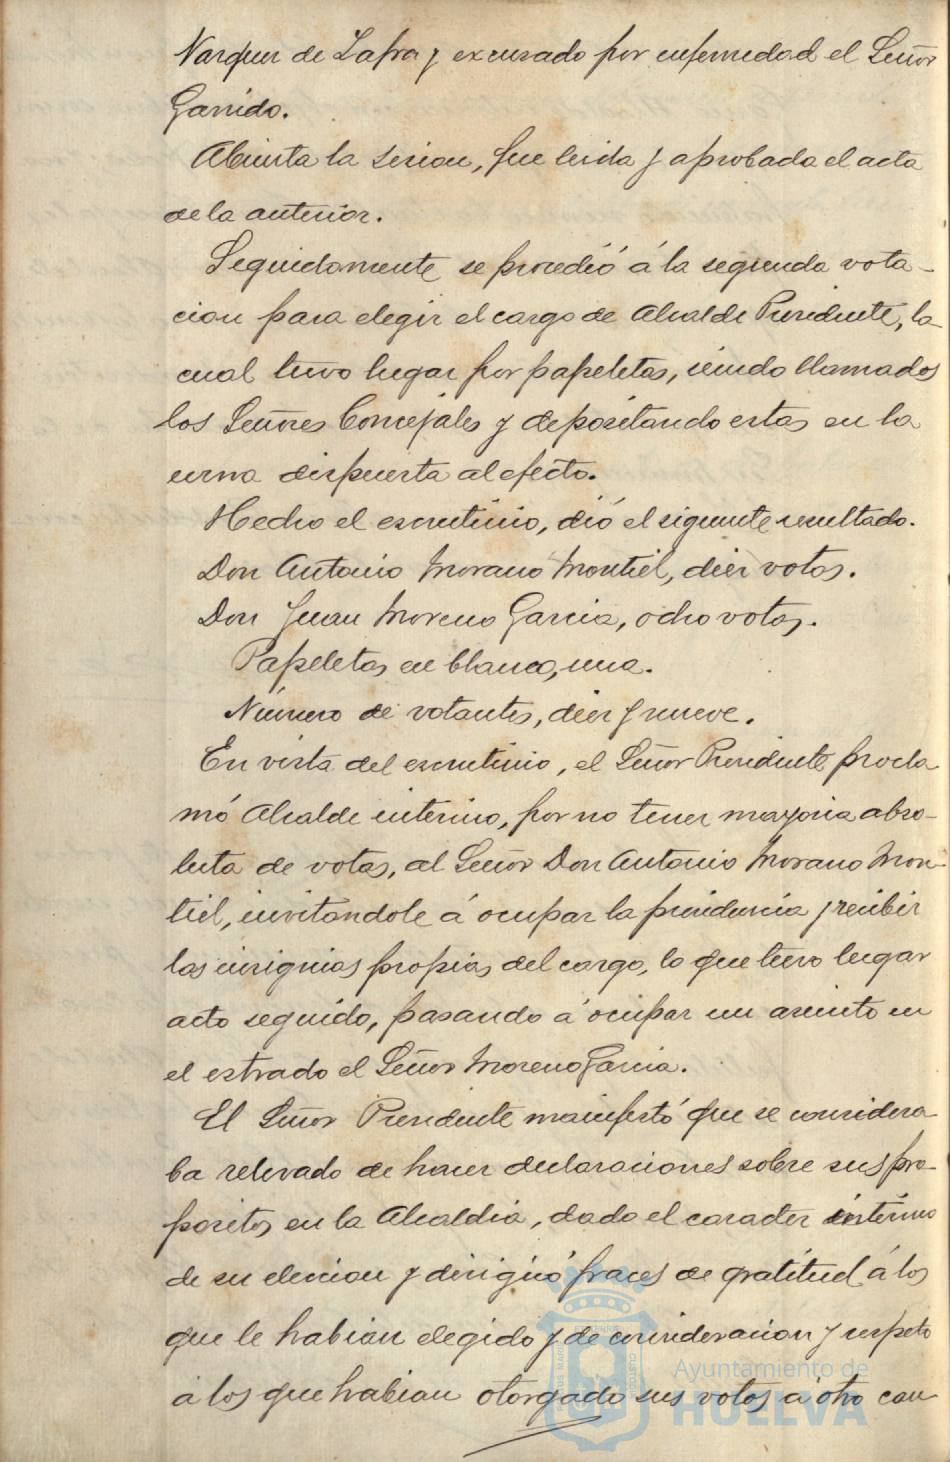 Vazquez de Zafra y excusado por enfermedad el Señor
Garrido.
Abierta la sesion, fue leida y aprobada el acta
de la anterior.
Seguidamente se procedió á la segunda vota-
cion para elegir el cargo de Alcalde Presidente, la
cual tuvo lugar por papeletas, siendo llamados
los Señores Concejales y depositando estas en la
urna dispuesta al efecto.
Hecho el escrutinio, dió el siguiente resultado.
Don Antonio Morano Montiel, diez votos.
Don Juan Moreno Garcia, ocho votos.
Papeletas en blanco, una.
Número de votantes, diez y nueve.
En vista del escrutinio, el Señor Presidente procla
mó Alcalde interino, por no tener mayoria abso-
luta de votos, al Señor Don Antonio Morano Mon-
tiel, invitandole á ocupar la presidencia y recibir
las insignias propias del cargo, lo que tuvo lugar
acto seguido, pasando á ocupar un asiento en
el estrado el Señor Moreno Garcia.
El Señor Presidente manifestó que se considera
ba relevado de hacer declaraciones sobre sus pro-
positos en la Alcaldia, dado el caracter interino
de su eleccion y dirigió frases de gratitud á los
que le habian elegido y de consideracion y respeto
á los que habian otorgado sus votos á otro can
Ayuntamiento de
HUELVA